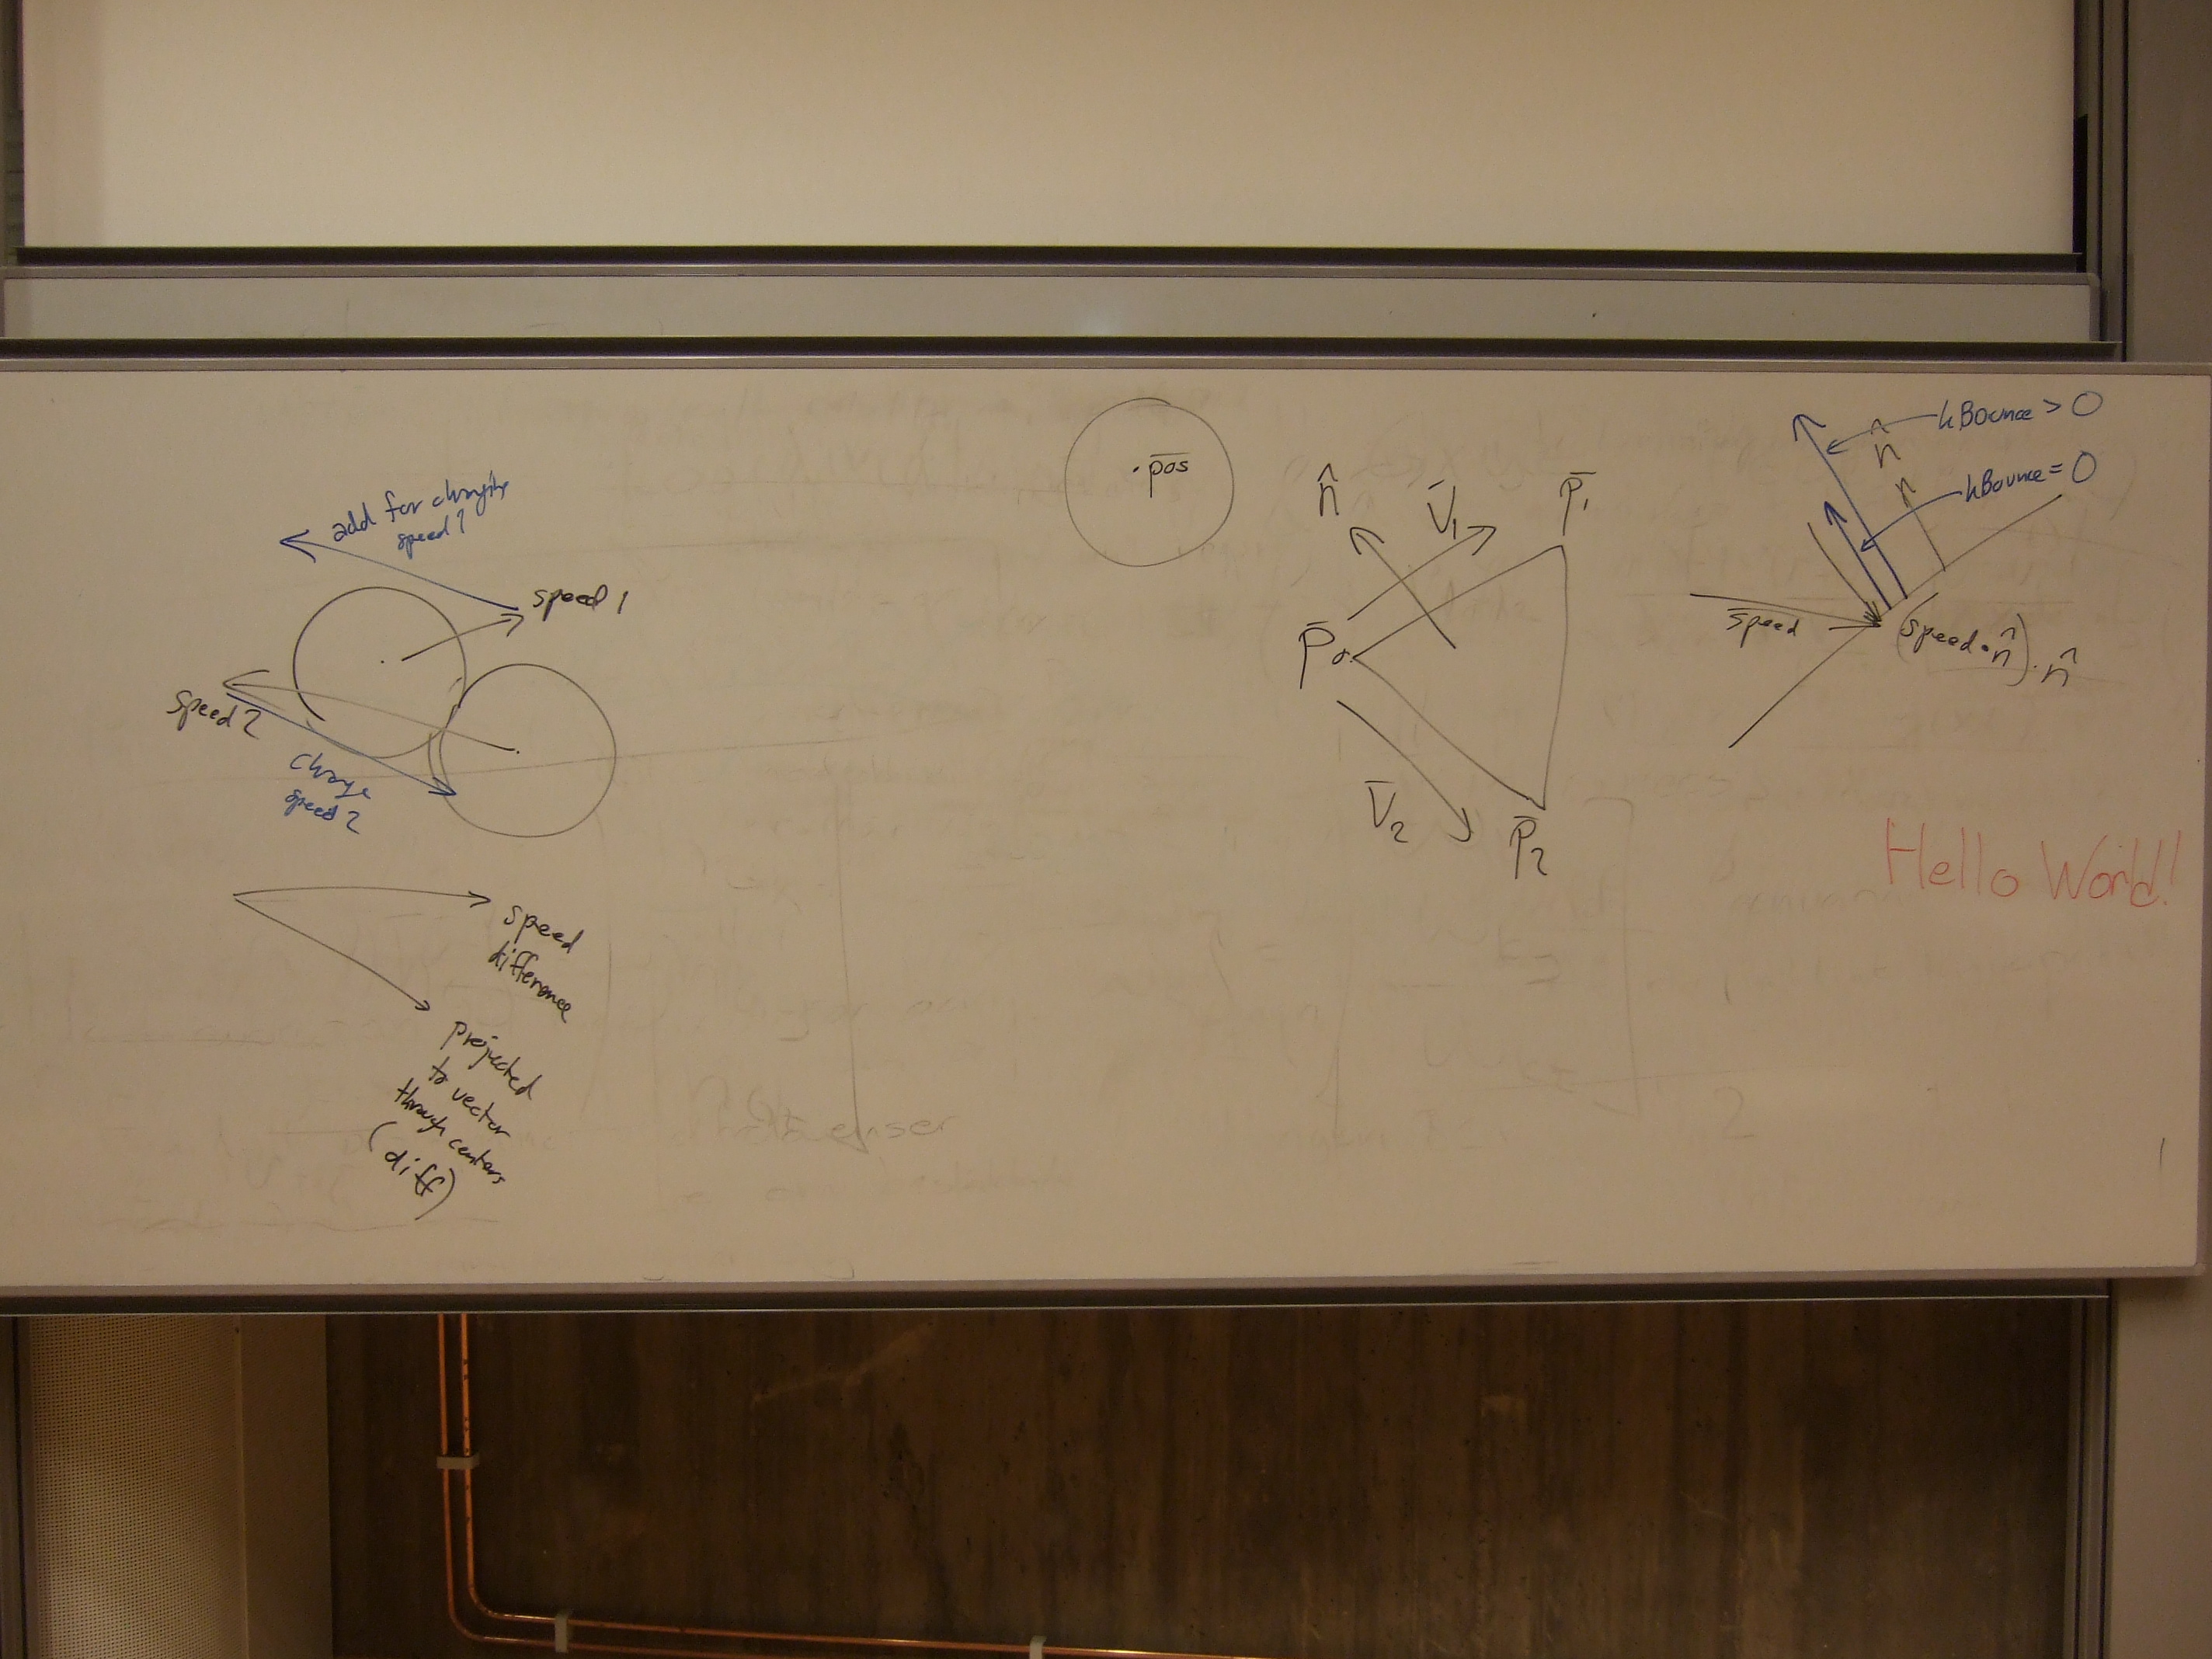 add for changing
speed 1
speed 1
speed 2
change
speed 2
speed
difference
projected
to vector
through centers
(diff)
p̄os
n̂
V̄₁
P̄₁
P̄₀
V̄₂
P̄₂
kBounce > 0
n̂
kBounce = 0
n
s̄peed
(speed · n̂) · n̂
Hello World!